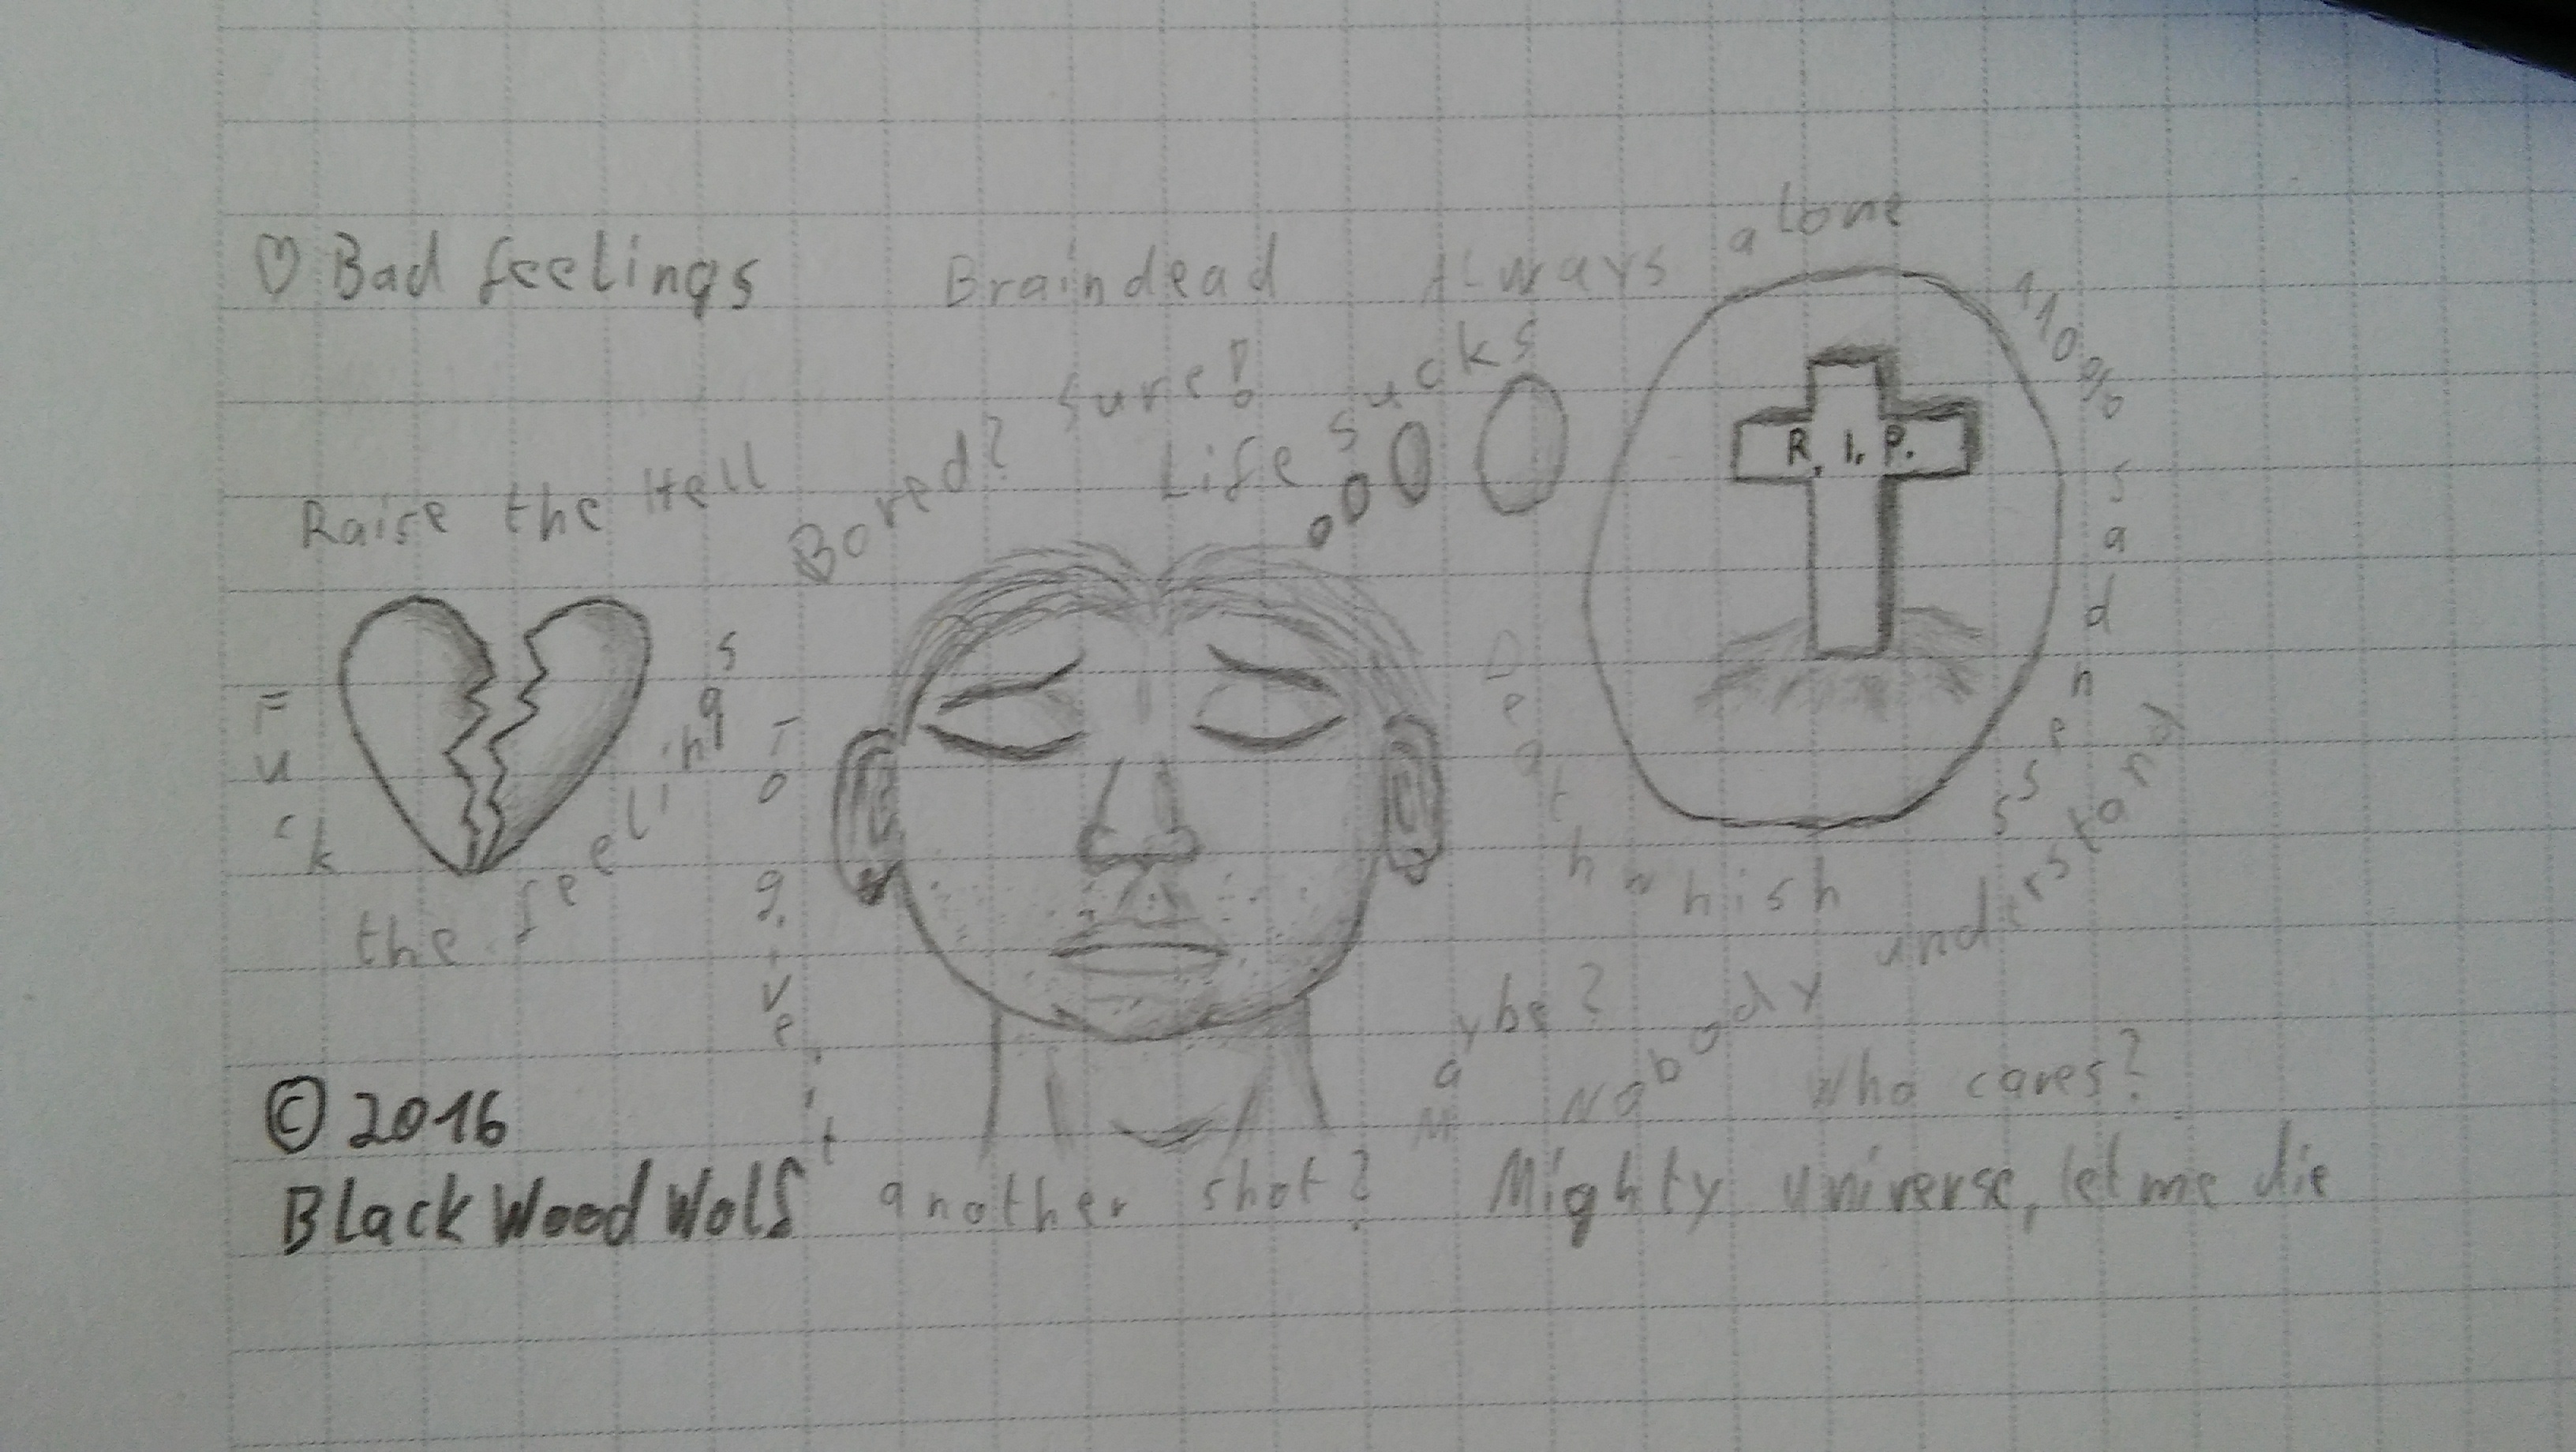 ♡ Bad feelings
Braindead
Always alone
110% sadness
Raise the Hell
Bored? Sure!
Life sucks
R.I.P.
Fuck the feelings
To give it another shot?
Maybe?
Death whish
Nobody understand
Who cares?
Mighty universe, let me die
© 2016
BlackWoodWolf